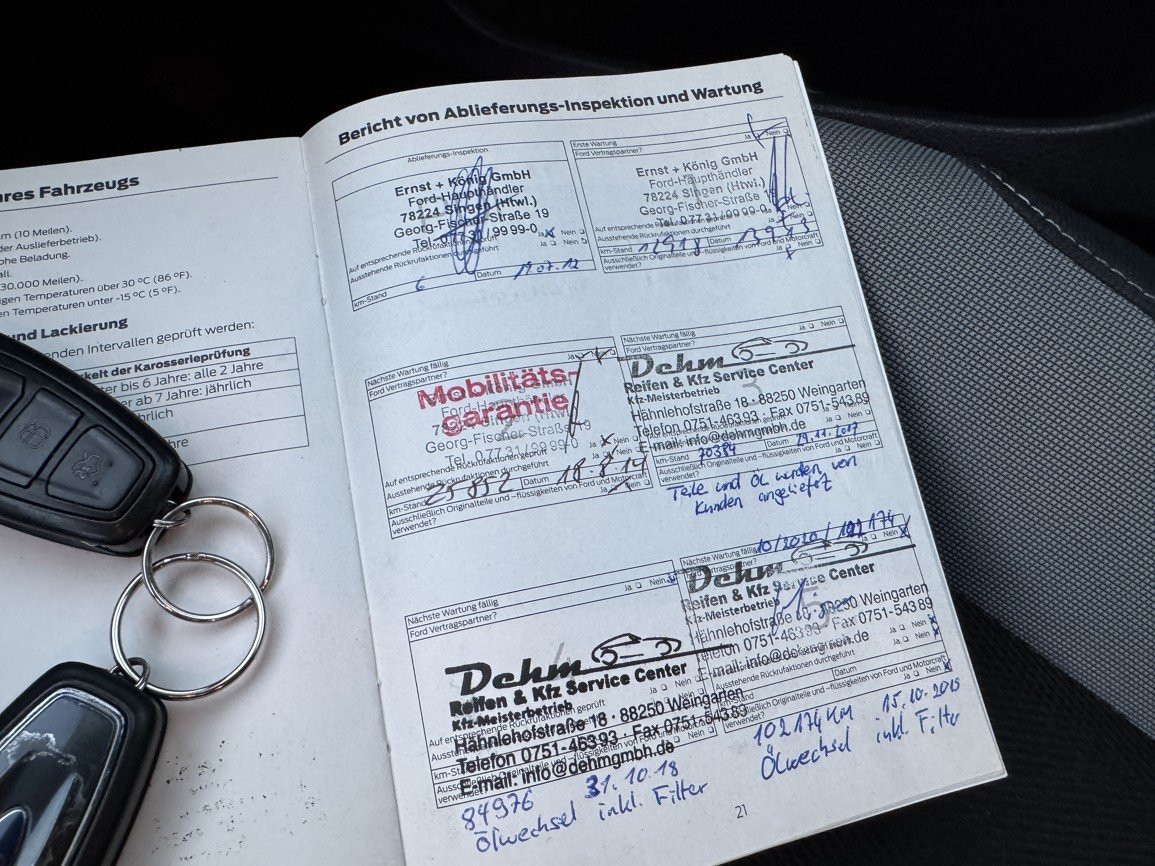 Ihres Fahrzeugs
m (10 Meilen).
der Auslieferbetrieb).
ohe Beladung.
all.
30.000 Meilen).
igen Temperaturen über 30 °C (86 °F).
en Temperaturen unter -15 °C (5 °F).
und Lackierung
enden Intervallen geprüft werden:
keit der Karosserieprüfung
ter bis 6 Jahre: alle 2 Jahre
er ab 7 Jahre: jährlich
ährlich
ahre
Bericht von Ablieferungs-Inspektion und Wartung
Ablieferungs-Inspektion
Ernst + König GmbH
Ford-Haupthändler
78224 Singen (Htwl.)
Georg-Fischer-Straße 19
Tel. 07731/9999-0
Ja Nein
Auf entsprechende Rückrufaktionen geprüft
Ja Nein
Ausstehende Rückrufaktionen durchgeführt
km-Stand 6 Datum 19.07.12
Erste Wartung
Ja Nein
Ford Vertragspartner?
Ernst + König GmbH
Ford-Haupthändler
78224 Singen (Htwl.)
Georg-Fischer-Straße
Tel. 07731/9999-0
Auf entsprechende Rückrufaktionen geprüft
Ausstehende Rückrufaktionen durchgeführt
km-Stand Datum
Ausschließlich Originalteile und -flüssigkeiten von Ford und Motorcraft
verwendet?
Nächste Wartung fällig
Ford Vertragspartner?
Mobilitäts-
garantie
Georg-Fischer-Straße 19
Tel. 07731/9999-0
Ja Nein
Auf entsprechende Rückrufaktionen geprüft
Ausstehende Rückrufaktionen durchgeführt
km-Stand 25852 Datum 18.8.14
Ausschließlich Originalteile und -flüssigkeiten von Ford und Motorcraft
verwendet?
Ja Nein
Nächste Wartung fällig
Ford Vertragspartner?
Ja Nein
Dehm
Reifen & Kfz Service Center
Kfz-Meisterbetrieb
Hähnlehofstraße 18 · 88250 Weingarten
Telefon 0751-46393 · Fax 0751-54389
E-mail: info@dehmgmbh.de
km-Stand 70384 Datum 29.11.2017
Ausschließlich Originalteile und -flüssigkeiten von Ford und Motorcraft
verwendet?
Teile und Öl wurden von
Kunden angeliefert
Nächste Wartung fällig
Ja Nein
Ford Vertragspartner?
Dehm
Reifen & Kfz Service Center
Kfz-Meisterbetrieb
Hähnlehofstraße 18 · 88250 Weingarten
Telefon 0751-46393 · Fax 0751-54389
E-mail: info@dehmgmbh.de
84976 31.10.18
Ölwechsel inkl. Filter
Nächste Wartung fällig 10/2020 / 102174
Ja Nein
Ford Vertragspartner?
Dehm
Reifen & Kfz Service Center
Kfz-Meisterbetrieb
Hähnlehofstraße 88250 Weingarten
Telefon 0751-46393 · Fax 0751-54389
E-mail: info@dehmgmbh.de
Ausstehende Rückrufaktionen durchgeführt
Datum
Ausschließlich Originalteile und -flüssigkeiten von Ford und Motorcraft
verwendet?
Ja Nein
102174 KM 15.10.2019
Ölwechsel inkl. Filter
21